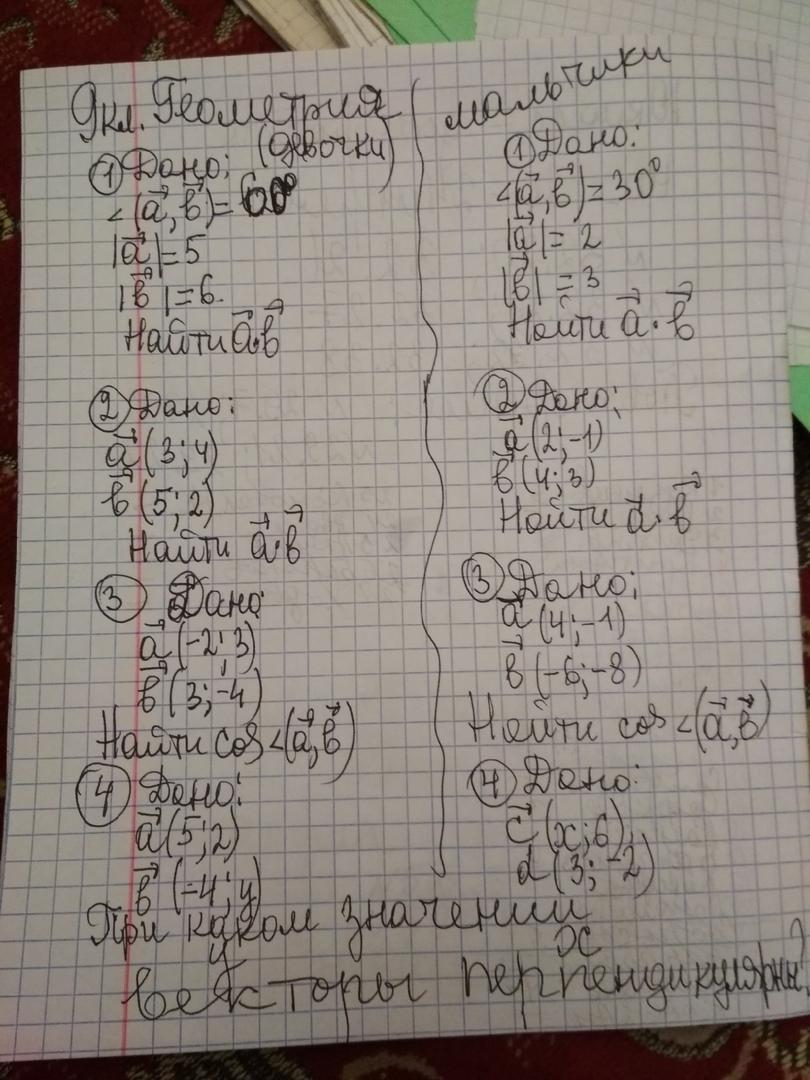 9кл. Геометрия
(девочки)
① Дано:
<(a⃗,в⃗)=60°
|a⃗|=5
|в⃗|=6.
Найти a⃗·в⃗
② Дано:
a⃗ (3;4)
в⃗ (5;2)
Найти a⃗·в⃗
③ Дано:
a⃗ (-2;3)
в⃗ (3;-4)
Найти cos<(a⃗,в⃗)
④ Дано:
a⃗ (5;2)
в⃗ (-4;y)
мальчики
① Дано:
<(a⃗,в⃗)=30°
|a⃗|=2
|в⃗|=3
Найти a⃗·в⃗
② Дано:
a⃗ (2;-1)
в⃗ (4;3)
Найти a⃗·в⃗
③ Дано:
a⃗ (4;-1)
в⃗ (-6;-8)
Найти cos<(a⃗,в⃗)
④ Дано:
c⃗ (x;6)
d (3;-2)
При каком значении
y x
векторы перпендикулярны?